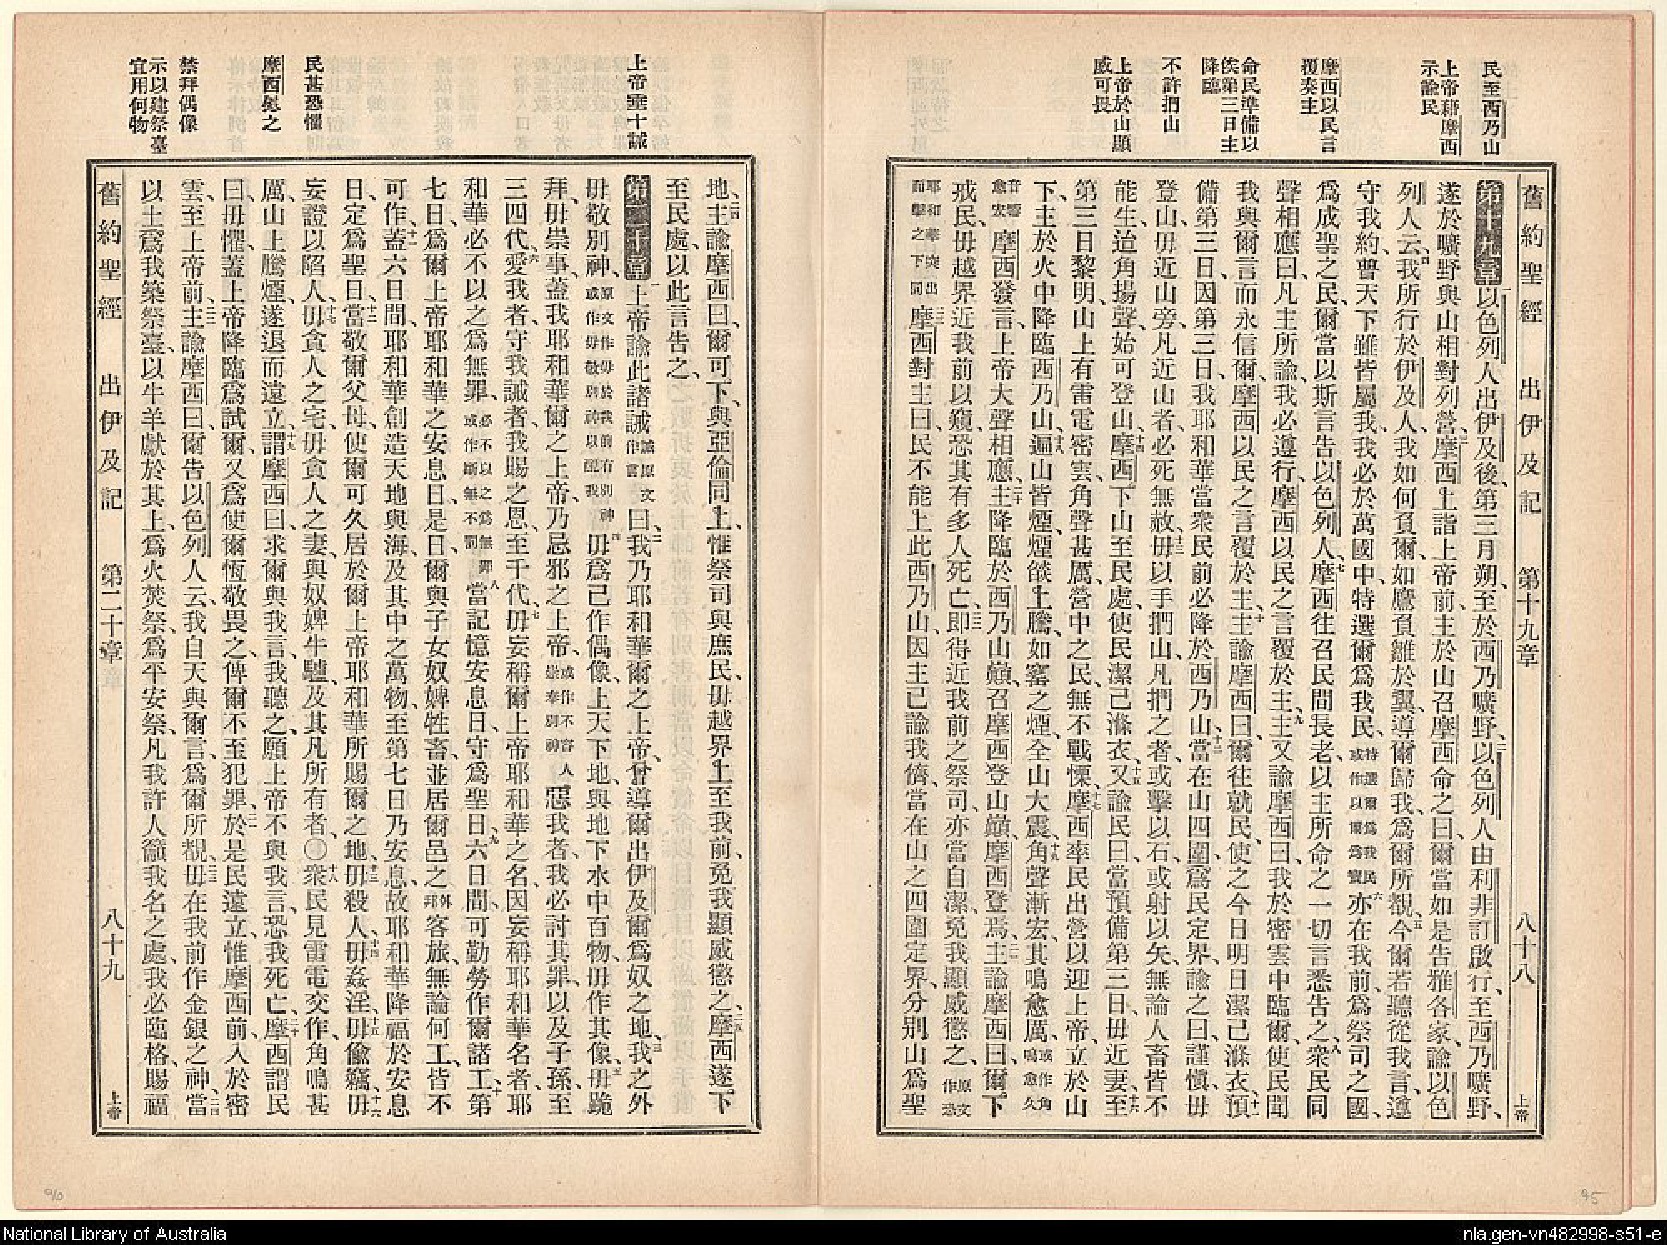 民至西乃山
上帝藉摩西
示諭民
摩西以民言
覆奏主
命民準備以
俟第三日主
降臨
不許捫山
上帝於山顯
威可畏
舊約聖經 出伊及記 第十九章 八十八 上帝
第十九章 以色列人出伊及後、第三月朔、至於西乃曠野、以色列人由利非訂啟行、至西乃曠野、
遂於曠野與山相對列營、摩西上詣上帝前、主於山召摩西命之曰、爾當如是告雅各家、諭以色
列人云、我所行於伊及人、我如何負爾、如鷹負雛於翼、導爾歸我、爲爾所覩、今爾若聽從我言、遵
守我約、普天下雖皆屬我、我必於萬國中、特選爾爲我民、特選爾爲我民或作以爾爲寶 亦在我前、爲祭司之國、
爲成聖之民、爾當以斯言告以色列人、摩西往召民間長老、以主所命之一切言悉告之、衆民同
聲相應曰、凡主所諭、我必遵行、摩西以民之言覆於主、主又諭摩西曰、我於密雲中臨爾、使民聞
我與爾言、而永信爾、摩西以民之言覆於主、主諭摩西曰、爾往就民、使之今日明日潔己滌衣、預
備第三日、因第三日、我耶和華當衆民前必降於西乃山、當在山四圍爲民定界、諭之曰、謹慎毋
登山、毋近山旁、凡近山者必死無赦、毋以手捫山、凡捫之者、或擊以石、或射以矢、無論人畜皆不
能生、迨角揚聲、始可登山、摩西下山至民處、使民潔己滌衣、又諭民曰、當預備第三日、毋近妻、至
第三日黎明、山上有雷電密雲、角聲甚厲、營中之民、無不戰慄、摩西率民出營以迎上帝、立於山
下、主於火中降臨西乃山、遍山皆煙、煙燄上騰、如窰之煙、全山大震、角聲漸宏、其鳴愈厲、或作角鳴愈久
摩西發言、上帝大聲相應、主降臨於西乃山巔、召摩西登山巔、摩西登焉、主諭摩西曰、爾下
戒民、毋越界近我前以窺、恐其有多人死亡、卽得近我前之祭司、亦當自潔、免我顯威懲之、
摩西對主曰、民不能上此西乃山、因主已諭我儕、當在山之四圍定界、分別山爲聖
上帝垂十誡
民甚恐懼
摩西慰之
禁拜偶像
示以建祭臺
宜用何物
地、主諭摩西曰、爾可下、與亞倫同上、惟祭司與庶民、毋越界上至我前、免我顯威懲之、摩西遂下
至民處、以此言告之、
第二十章 上帝諭此諸誡、誡原文作言 曰、我乃耶和華爾之上帝、曾導爾出伊及爾爲奴之地、我之外
毋敬別神、原文作毋於我前有別神或作毋敬別神以配我 毋爲己作偶像、上天下地、與地下水中百物、毋作其像、毋跪
拜、毋崇事、蓋我耶和華爾之上帝、乃忌邪之上帝、或作不容人崇奉別神 惡我者、我必討其罪、以及子孫、至
三四代、愛我者、守我誡者、我賜之恩、至千代、毋妄稱爾上帝耶和華之名、因妄稱耶和華名者、耶
和華必不以之爲無罪、必不以之爲無罪或作斷無不罰 當記憶安息日、守爲聖日、六日間、可勤勞作爾諸工、第
七日、爲爾上帝耶和華之安息日、是日、爾與子女奴婢牲畜、並居爾邑之外邦客旅、無論何工、皆不
可作、蓋六日間、耶和華創造天地與海、及其中之萬物、至第七日乃安息、故耶和華降福於安息
日、定爲聖日、當敬爾父母、使爾可久居於爾上帝耶和華所賜爾之地、毋殺人、毋姦淫、毋偸竊、毋
妄證以陷人、毋貪人之宅、毋貪人之妻、與奴婢牛驢、及其凡所有者、〇衆民見雷電交作、角鳴甚
厲、山上騰煙、遂退而遠立、謂摩西曰、求爾與我言、我聽之、願上帝不與我言、恐我死亡、摩西謂民
曰、毋懼、蓋上帝降臨爲試爾、又爲使爾恆敬畏之、俾爾不至犯罪、於是民遠立、惟摩西前、入於密
雲、至上帝前、主諭摩西曰、爾告以色列人云、我自天與爾言、爲爾所覩、毋在我前作金銀之神、當
以土爲我築祭臺、以牛羊獻於其上、爲火焚祭、爲平安祭、凡我許人籲我名之處、我必臨格、賜福
舊約聖經 出伊及記 第二十章 八十九 上帝
National Library of Australia
nla.gen-vn482998-s51-e